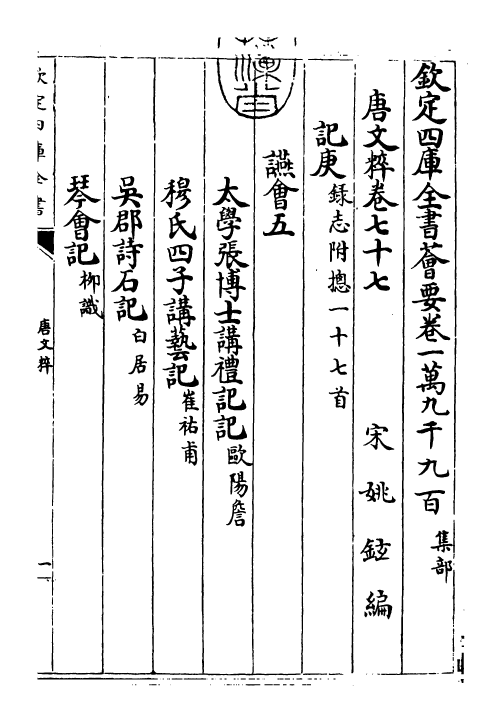 欽定四庫全書薈要卷一萬九千九百 集部
唐文粹卷七十七 宋 姚鉉編
記庚 録志附摠一十七首
讌會五
太學張博士講禮記記 歐陽詹
穆氏四子講藝記 崔祐甫
吳郡詩石記 白居易
琴會記 柳識
欽定四庫全書
唐文粹
一